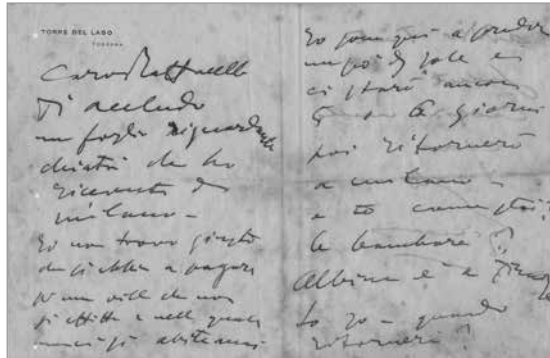 TORRE DEL LAGO
TOSCANA
Caro Raffaello
Ti accludo
un foglio riguardante
che ho
ricevuto da
milano -
Io non trovo giusto
che si abbia a pagare
una villa che non
si affitta e nella quale
abitiamo
Io sono qui a prender
un po' di sole e
ci starò ancora
5 o 6 giorni
poi ritornerò
a milano -
e tu come stai?
le bambore
Albina è a Firenze
quando
ritornerà?